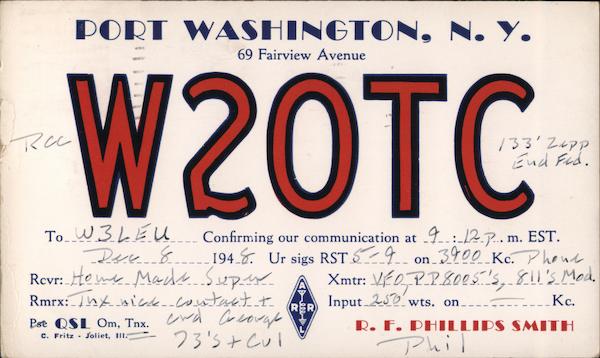 PORT WASHINGTON, N. Y.
69 Fairview Avenue
W2OTC
Rcc
133' Zepp
End Fed.
To W3LEU Confirming our communication at 9:12 p. m. EST.
Dec 8 1948. Ur sigs RST 5-9 on 3900 Kc. Phone
Rcvr: Home Made Super Xmtr: VFO, PP 8005's, 811's Mod.
Rmrx: Tnx nice contact + Input 250 wts. on — Kc.
Pse QSL Om, Tnx. and George
C. Fritz - Joliet, Ill. 73's + Cul
ARRL
R. F. PHILLIPS SMITH
Phil